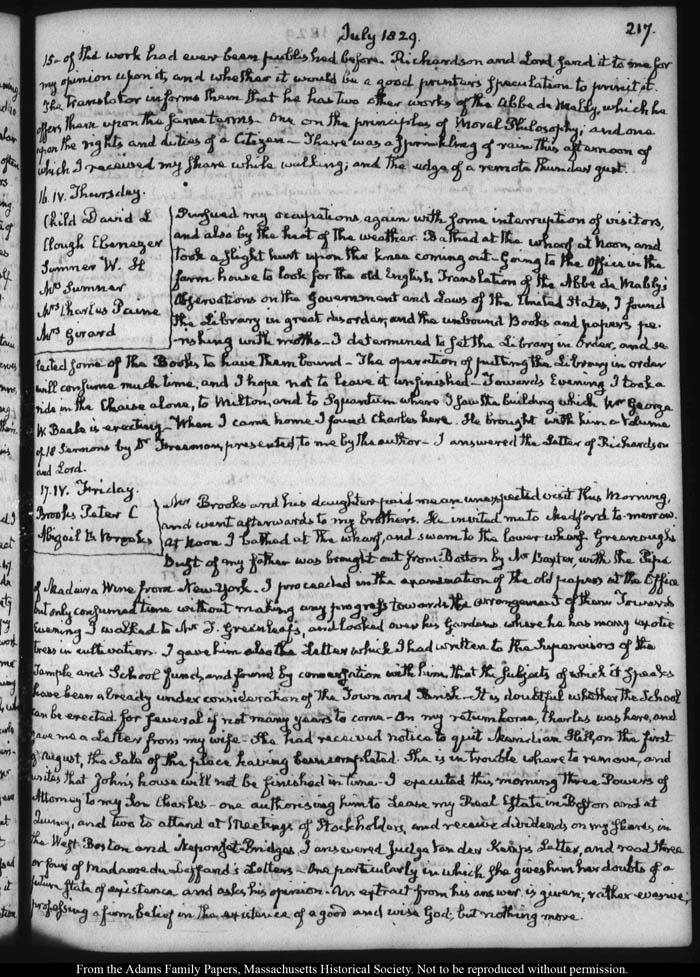 July 1829.
217.
15- of the work had ever been published before. Richardson and Lord send it to me for
my opinion upon it, and whether it would be a good printers speculation to print it.
The translator informs them that he has two other works of the Abbé de Mably, which he
offers them upon the same terms- One on the principles of Moral Philosophy; and one
upon the rights and duties of a Citizen- There was a sprinkling of rain this afternoon of
which I received my share while walking; and the edge of a remote thunder gust.
16. IV. Thursday.
Child David L
Clough Ebenezer
Sumner W. H
Mrs Sumner
Mrs Charles Paine
Mrs Girard
Pursued my occupations again with some interruption of visitors,
and also by the heat of the weather. Bathed at the wharf at Noon, and
took a slight hurt upon the knee coming out- Going to the Office in the
farm house to look for the old English Translation of the Abbé de Mably's
Observations on the Government and Laws of the United States, I found
the Library in great disorder, and the unbound Books and papers pe-
-rishing with moths- I determined to set the Library in order, and se
lected some of the Books to have them bound- The operation of putting the Library in order
will consume much time, and I hope not to leave it unfinished- Towards Evening I took a
ride in the Chaise alone, to Milton, and to Squantum where I saw the building which Mr George
W Beale is erecting- When I came home I found Charles here. He brought with him a Volume
of 18 Sermons by Dr Freeman, presented to me by the author- I answered the Letter of Richardson
and Lord.
17. IV. Friday.
Brooks Peter C
Abigail B Brooks
Mr Brooks and his daughter paid me an unexpected visit this Morning,
and went afterwards to my brothers. He invited me to Medford to-morrow.
At Noon I bathed at the wharf, and swam to the lower wharf. Greenough's
Bust of my father was brought out from Boston by Mr Baxter, with the Pipe
of Madeira Wine from New-York. I proceeded in the examination of the old papers at the Office
but only consumed time without making any progress towards the arrangement of them. Towards
Evening I walked to Mr T. Greenleaf's, and looked over his Gardens. where he has many exotic
trees in cultivation. I gave him also the Letter which I had written to the Supervisors of the
Temple and School fund, and found by conversation with him, that the subjects of which it speaks
have been already under consideration of the Town and Parish- It is doubtful whether the School
can be erected for several if not many years to come- On my return home, Charles was here, and
gave me a Letter from my wife- She had received notice to quit Meridian Hill, on the first
of August, the Sale of the place having been completed. She is in trouble where to remove, and
writes that John's house will not be finished in time. I executed this morning three Powers of
Attorney to my Son Charles- one authorising him to Lease my Real Estate in Boston and at
Quincy, and two to attend at Meetings of Stockholders, and receive dividends on my shares, in
the West Boston and Neponset-Bridges. I answered Judge Van der Kemp's Letter, and read three
or four of Madame du Deffand's Letters- One particularly in which she gives him her doubts of a
future State of existence and asks his opinion. An extract from his answer is given, rather evasive;
professing a firm belief in the existence of a good and wise God, but nothing more.
From the Adams Family Papers, Massachusetts Historical Society. Not to be reproduced without permission.